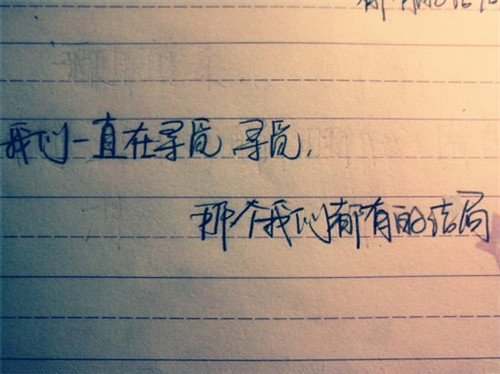 我们一直在寻觅 寻觅，
那个我们都有的结局